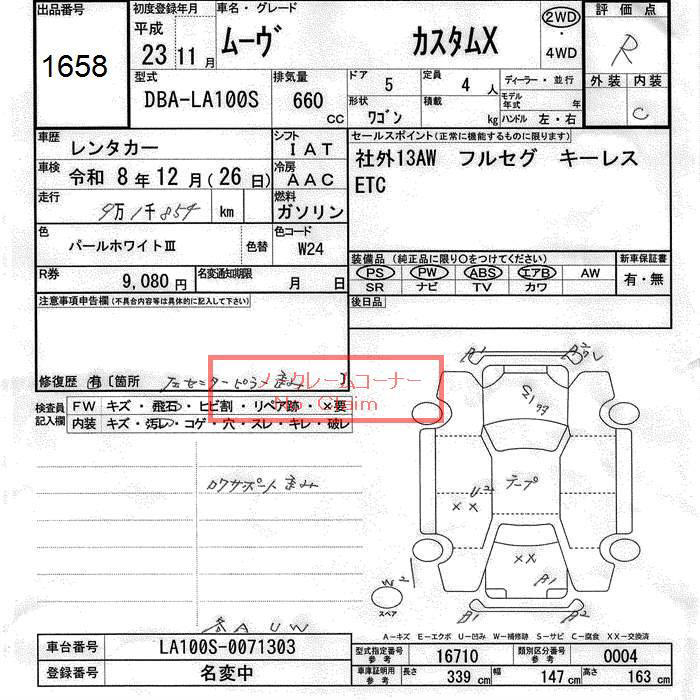 出品番号
1658
初度登録年月
平成
23年11月
車名・グレード
ムーヴ カスタムX
2WD
・
4WD
評価点
R
外装 内装
C
型式
DBA-LA100S
排気量
660
CC
ドア
5
定員
4人
形状
ワゴン
積載
kg
ディーラー・並行
モデル年式 年
ハンドル 左・右
車歴
レンタカー
シフト
IAT
車検
令和 8年12月(26日)
冷房
AAC
走行
9万1千854
km
燃料
ガソリン
色
パールホワイトⅢ
色替
色コード
W24
R券
9,080円
名変通知期限
月 日
セールスポイント(正常に機能するものに限ります)
社外13AW フルセグ キーレス
ETC
装備品(純正品に限り〇をつけてください)
PS PW ABS エアB AW
SR ナビ TV カワ
新車保証書
有・無
後日品
注意事項申告欄(不具合内容等は具体的に記入して下さい)
修復歴 有〔箇所
センターピラー歪み
〕
メンクレームコーナー
No Claim
検査員
記入欄
FW キズ・飛石・ヒビ割・リペア跡・×要
内装 キズ・汚レ・コゲ・穴・スレ・キレ・破レ
コアサポート歪み
各AUW
テープ
U2
××
××
B1
B1
B2
W2
スペア
A-キズ E-エクボ U-凹み W-補修跡 S-サビ C-腐食 XX-交換済
車台番号
LA100S-0071303
登録番号
名変中
型式指定番号
参考
16710
類別区分番号
参考
0004
車庫証明用
参考
長さ
339cm
幅
147cm
高さ
163cm